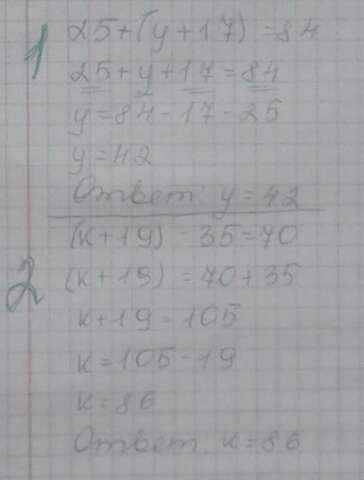 1 25+(y+17)=84
25+y+17=84
y=84-17-25
y=42
Ответ: y=42
2 (к+19)-35=70
(к+19)=70+35
к+19=105
к=105-19
к=86
Ответ. к=86